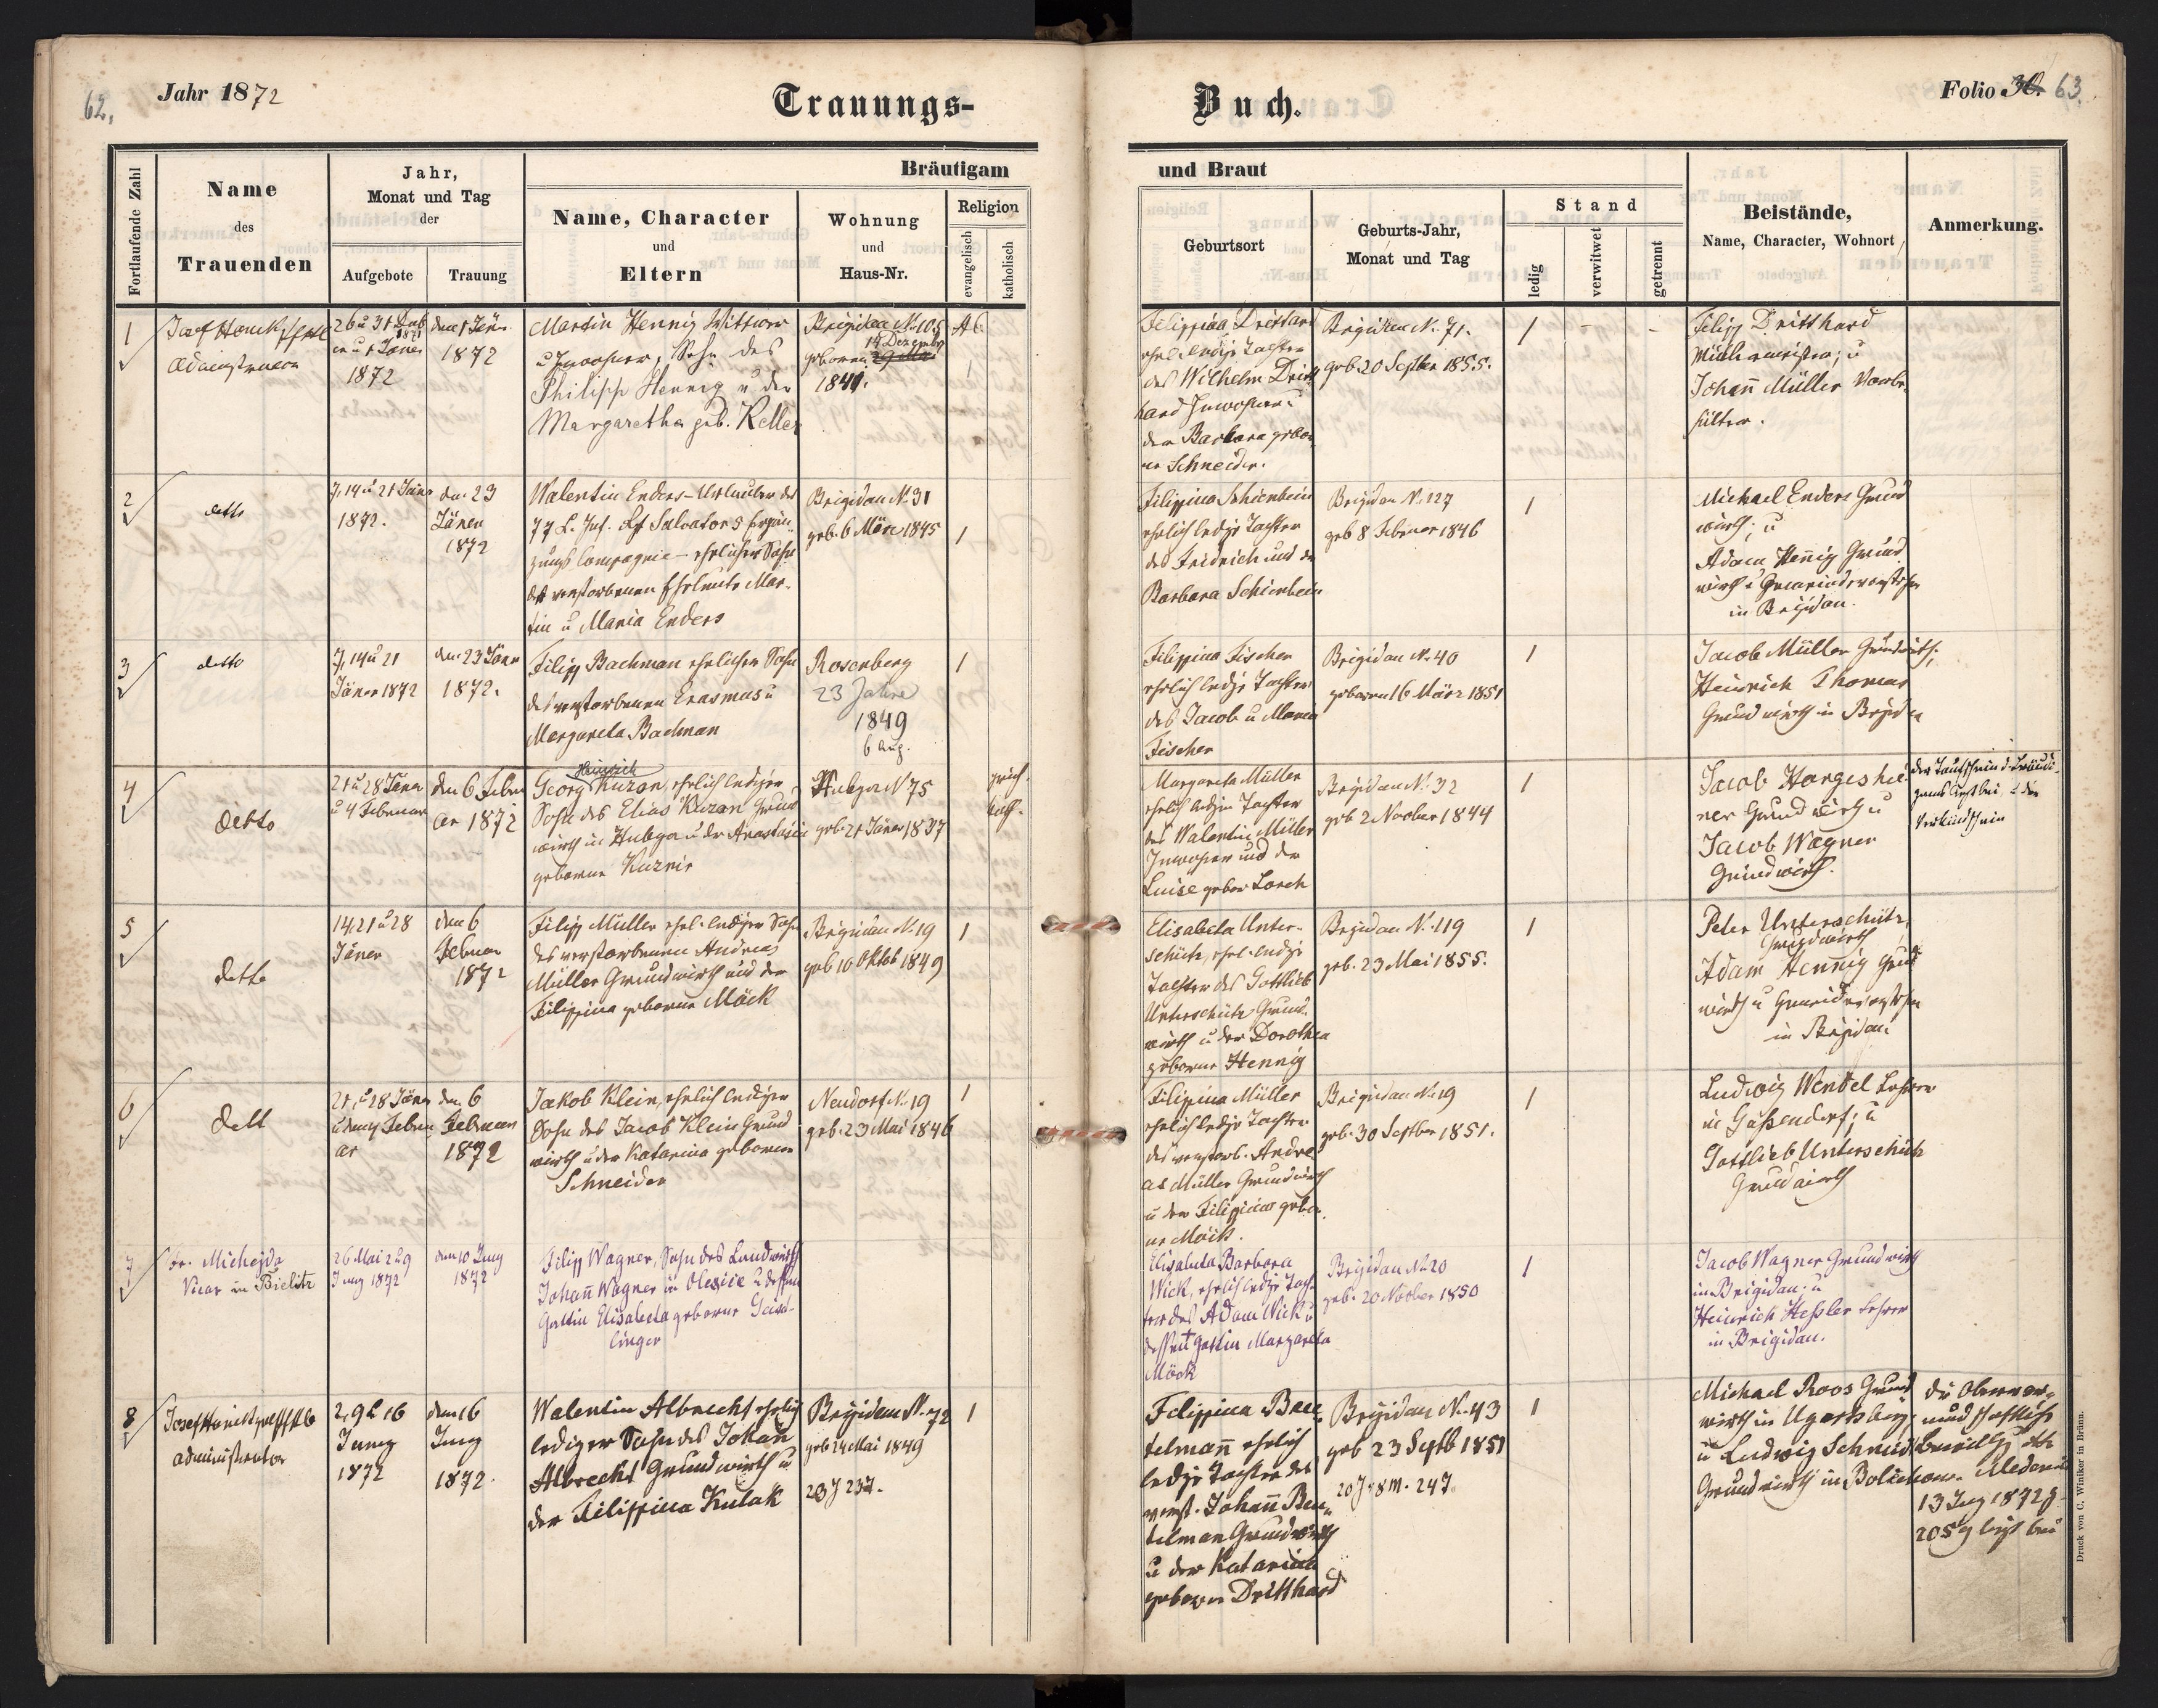 62.
Jahr 1872
Trauungs-
Buch.
Folio 30. 63.
Fortlaufende Zahl
Name
des
Trauenden
Jahr,
Monat und Tag
der
Aufgebote
Trauung
Bräutigam
Name, Character
und
Eltern
Wohnung
und
Haus-Nr.
Religion
evangelisch
katholisch
und Braut
Geburtsort
Geburts-Jahr,
Monat und Tag
Stand
ledig
verwitwet
getrennt
Beistände,
Name, Character, Wohnort
Anmerkung.
1
1872
den 1 Jäner
1872
Martin Hennig Wittwer
u Inwohner, Sohn des
Philipp Hennig u der
Margaretha geb. Keller
Brigidau N. 105
14 Dezember
geboren
1849.
A C
1
Filippina Dritthard
ehel. ledige Tochter
des Wilhelm Dritt
hard Inwohner u
der Barbara gebor
ne Schneider.
Brigidau N. 71.
geb 20 Septber 1855.
1
-
-
Filipp Dritthard
u
Johann Müller
2
detto
7, 14 u 21 Jäner
1872.
den 23
Jäner
1872
Valentin Enders - Urlauber des
77 L. Inf. Salvator 5 Ergän
zungs Compagnie - ehelicher Sohn
der verstorbenen Eheleute Mar-
tin u Maria Enders
Brigidau N. 31
geb. 6 März 1845
1
Filippina Schienbein
ehelich ledige Tochter
des Fridrich und der
Barbara Schienbein
Brigidau N. 127
geb 8 Februar 1846
1
Michael Enders Grund
wirth; u
Adam Hennig Grund
wirth u Gemeindevorsteher
in Brigidau.
3
detto
7, 14 u 21
Jäner 1872
den 23 Jäner
1872.
Filipp Bachman ehelicher Sohn
des verstorbenen Erasmus u
Margareta Bachman
Rosenberg
23 Jahre
1849
6 Aug.
1
Filippina Fischer
ehelich ledige Tochter
des Jacob u Maria
Fischer
Brigidau N. 40
geboren 16 März 1851
1
Jacob Müller Grundwirth;
Heinrich Thomas
Grundwirth in Brigidau
4
detto
21 u 28 Jäner
u 4 Februar
den 6 Febru
ar 1872
Heinrich
Georg Kuzan, ehelich lediger
Sohn des Elias Kuzan Grund
wirth in Hubza u der Anastasia
geborene Kuzniz
N 75
geb. 21 Jäner 1837
griech.
kath.
Margareta Müller
ehelich ledige Tochter
des Valentin Müller
Inwohner und der
Luise geborn Lorch
Brigidau N. 32
geb 2 November 1844
1
Jacob
ner Grundwirth u
Jacob Wagner
Grundwirth.
5
detto
14, 21 u 28
Jäner
den 6
Februar
1872
Filipp Müller ehel. lediger Sohn
des verstorbenen Andreas
Müller Grundwirth und der
Filippina geborene Möck
Brigidau N. 19
geb 10 Oktob 1849
1
Elisabeta Unter-
schütz, ehel. ledige
Tochter des Gottlieb
Unterschütz Grund-
wirth u der Dorothea
geborne Hennig
Brigidau N. 119
geb. 23 Mai 1855.
1
Peter Unterschütz,
Grundwirth
Adam Hennig Grund
wirth u Gemeindevorsteher
in Brigidau
6
dett
21, u 28 Jäner
u den 4 Febru
ar
den 6
Februar
1872
Jakob Klein, ehelich lediger
Sohn des Jacob Klein Grund
wirth u der Katarina geborene
Schneider
Neudorf N. 19
geb. 23 Mai 1846
1
Filippina Müller
ehelich ledige Tochter
des verstorb. Andre
as Müller Grundwirth
u der Filippina gebor
ne Möck.
Brigidau N. 19
geb. 30 Septber 1851.
1
Ludwig Wendel Lehrer
in Gaßendorf; u
Gottlieb Unterschütz
Grundwirth
7
Fr. Michejda
Vicar in Bielitz
26 Mai 2 u 9
Juny 1872
den 10 Juny
1872
Filipp Wagner, Sohn des Landwirth
Johann Wagner in Olexice u deßen
Gattin Elisabeta geborne
Elisabeta Barbara
Wick, ehelich ledige Toch-
ter des Adam Wick u
deßen † Gattin Margareta
Möck
Brigidau N. 20
geb. 20 November 1850
1
Jacob Wagner Grundwirth
in Brigidau; u
Heinrich Heßler Lehrer
in Brigidau.
8
Josef
administrator
2, 9 u 16
Juny
1872
den 16
Juny
1872.
Valentin Albrecht ehelich
lediger Sohn des Johann
Albrecht Grundwirth u
der Filippina Kulak
Brigidau N. 72
geb 24 Mai 1849
23 J 23 T.
1
Filippina Beu-
telmann ehelich
ledige Tochter des
verst. Johann Beu-
telman Grundwirth
u der Katarina
geboren Dritthard
Brigidau N. 43
geb 23 Septb 1851
20 J. 8 M. 24 T.
1
Michael Roos Grund
wirth in Ugartsberg;
u Ludwig Schmidt
Grundwirth in Bolechow.
13 Juny 1872 Z.
2059 liegt bei
Druck von C. Winiker in Brünn.